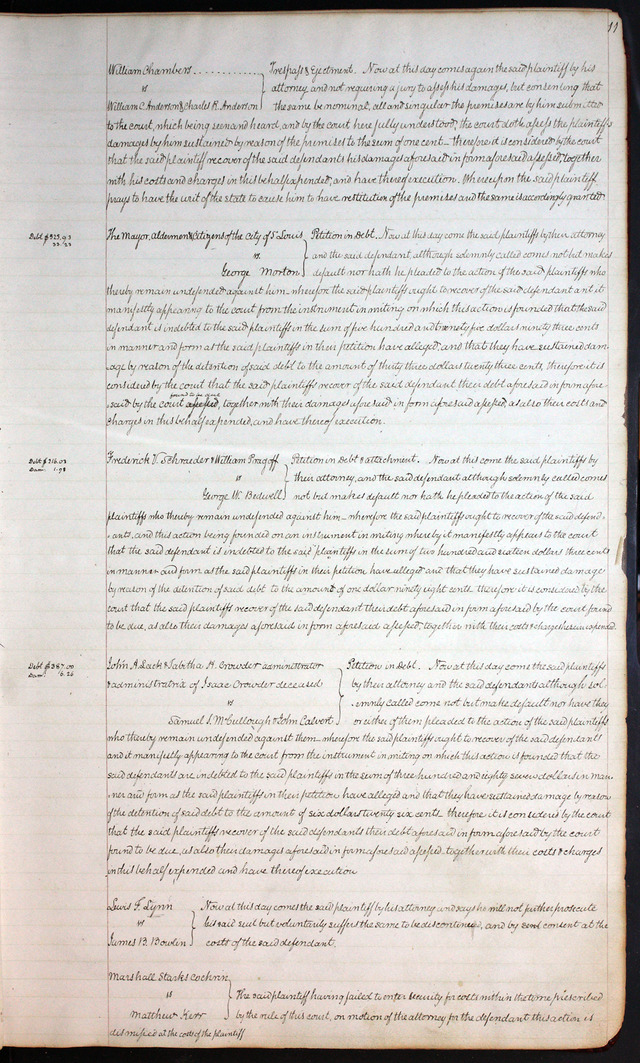 11
William Chambers . . . . . . . . . . . . Trespass & Ejectment. Now at this day comes again the said plaintiff by his
vs attorney, and not requiring a jury to assess his damages, but consenting that
William C. Anderson & Charles R. Anderson the same be nominal, all and singular the premises are by him submitted
to the court, which being seen and heard, and by the court here fully understood, the court doth assess the plaintiffs
damages by him sustained by reason of the premises to the sum of one cent _ therefore it is considered by the court
that the said plaintiff recover of the said defendants his damages aforesaid in form aforesaid assessed, together
with his costs and charges in this behalf expended, and have thereof execution. Whereupon the said plaintiff
prays to have the writ of the state to cause him to have restitution of the premises and the same is accordingly granted.
Debt $525.93
33/23
The Mayor, Aldermen & Citizens of the City of St Louis Petition in Debt. Now at this day come the said plaintiffs by their attorney
vs. and the said defendant, although solemnly called comes not but makes
George Morton default nor hath he pleaded to the action of the said plaintiffs who
thereby remain undefended against him _ wherefore the said plaintiffs ought to recover of the said defendant and it
manifestly appearing to the court from the instrument in writing on which this action is founded that the said
defendant is indebted to the said plaintiffs in the sum of five hundred and twenty five dollars ninety three cents
in manner and form as the said plaintiffs in their petition have alleged, and that they have sustained dam-
age by reason of the detention of said debt to the amount of thirty three dollars twenty three cents, therefore it is
considered by the court that the said plaintiffs recover of the said defendant their debt aforesaid in form afore-
found to be due
said by the court assessed, together with their damages aforesaid in form aforesaid assessed, as also their costs and
charges in this behalf expended, and have thereof execution.
Debt $216.03
Dam. 1.98
Frederick V. Schraeder & William Pragoff Petition in Debt & attachment. Now at this come the said plaintiffs by
vs their attorney, and the said defendant although solemnly called comes
George W. Bedwell not but makes default nor hath he pleaded to the action of the said
plaintiffs who thereby remain undefended against him _ wherefore the said plaintiffs ought to recover of the said defend-
ants, and this action being founded on an instrument in writing whereby it manifestly appears to the court
that the said defendant is indebted to the said plaintiffs in the sum of two hundred and sixteen dollars three cents
in manner and form as the said plaintiffs in their petition have alleged and that they have sustained damage
by reason of the detention of said debt to the amount of one dollar ninety eight cents. Therefore it is considered by the
court that the said plaintiffs recover of the said defendant their debt aforesaid in form aforesaid by the court found
to be due, as also their damages aforesaid in form aforesaid assessed, together with their costs & charges herein expended.
Debt $387.00
Dam. 6.26
John A. Zack & Tabitha H. Crowder administrator Petition in Debt. Now at this day come the said plaintiffs
& administratrix of Isaac Crowder deceased by their attorney and the said defendants although sol-
vs emnly called come not but make default nor have they
Samuel S. McCullough & John Calvert or either of them pleaded to the action of the said plaintiffs
who thereby remain undefended against them _ wherefore the said plaintiffs ought to recover of the said defendants
and it manifestly appearing to the court from the instrument in writing on which this action is founded that the
said defendants are indebted to the said plaintiffs in the sum of three hundred and eighty seven dollars in man-
ner and form as the said plaintiffs in their petition have alleged and that they have sustained damage by reason
of the detention of said debt to the amount of six dollars twenty six cents. therefore it is considered by the court
that the said plaintiffs recover of the said defendants their debt aforesaid in form aforesaid by the court
found to be due, as also their damages aforesaid in form aforesaid assessed, together with their costs & charges
in this behalf expended and have thereof execution
Lewis F. Lynn Now at this day comes the said plaintiff by his attorney and says he will not further prosecute
vs his said suit but voluntarily suffers the same to be discontinued, and by consent at the
James B. Bowlin costs of the said defendant.
Marshall Starks Cochrn
vs The said plaintiff having failed to enter security for costs within the time prescribed
Matthew Kerr by the rule of this court, on motion of the attorney for the defendant this action is
dismissed at the costs of the plaintiff